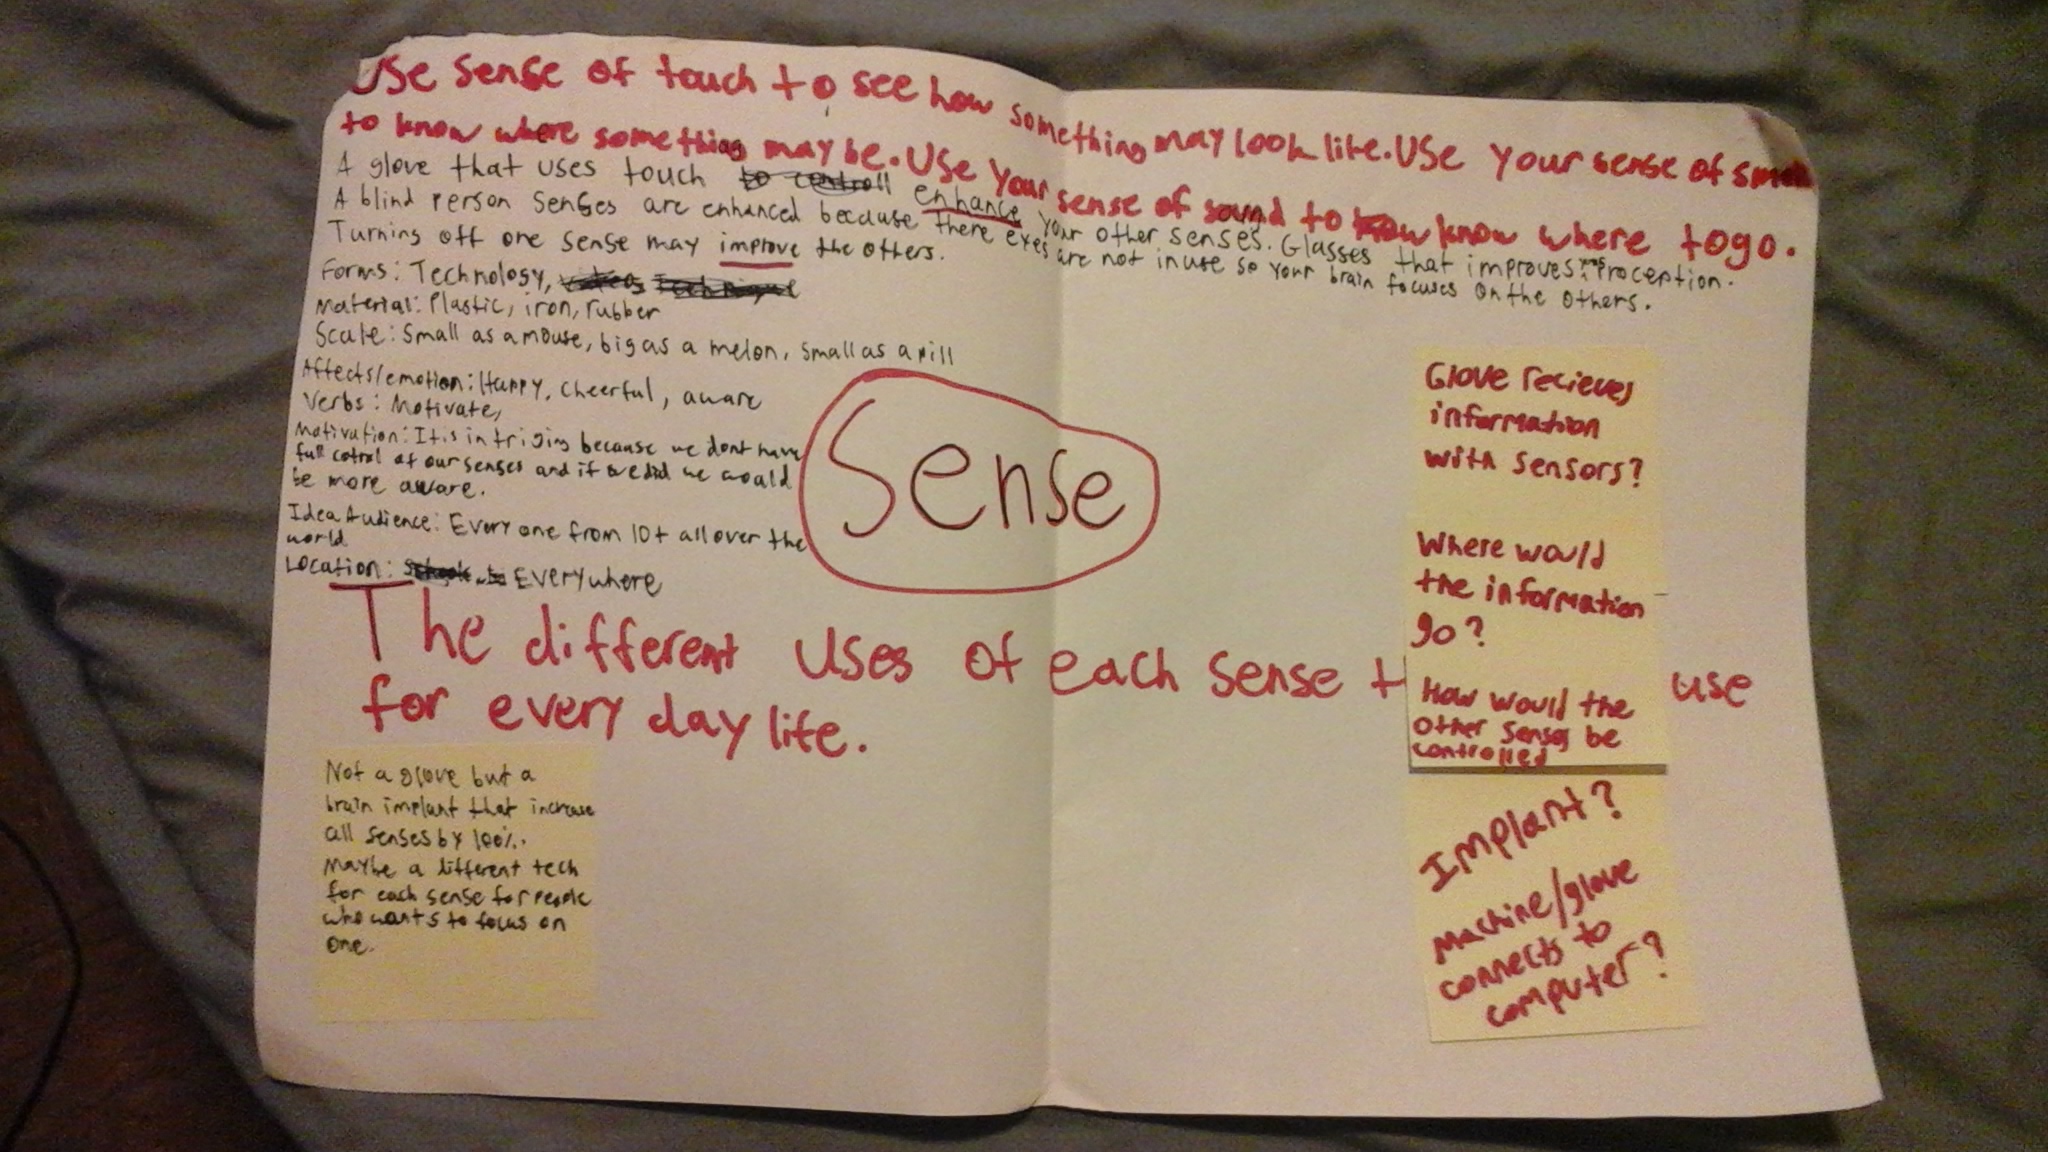 Use sense of touch to see how something may look like. Use your sense of smell
to know where something may be. Use your sense of sound to know where to go.
A glove that uses touch to controll enhance your other senses. Glasses that improves your Proception.
A blind person senses are enhanced because there eyes are not in use so your brain focuses on the others.
Turning off one sense may improve the others.
Forms: Technology,
Material: Plastic, iron, rubber
Scale: Small as a mouse, big as a melon, small as a pill
Affects/emotion: Happy, cheerful, aware
Verbs: Motivate,
Motivation: It is intriging because we dont have
full cotrol of our senses and if we did we would
be more aware.
Idea Audience: Every one from 10+ all over the
world
Location: Everywhere
Sense
The different uses of each sense use
for every day life.
Not a glove but a
brain implant that increase
all senses by 100%.
Maybe a different tech
for each sense for people
who wants to focus on
one.
Glove recieves
information
with sensors?
Where would
the information
go?
How would the
other senses be
controlled
Implant?
Machine/glove
connects to
computer?